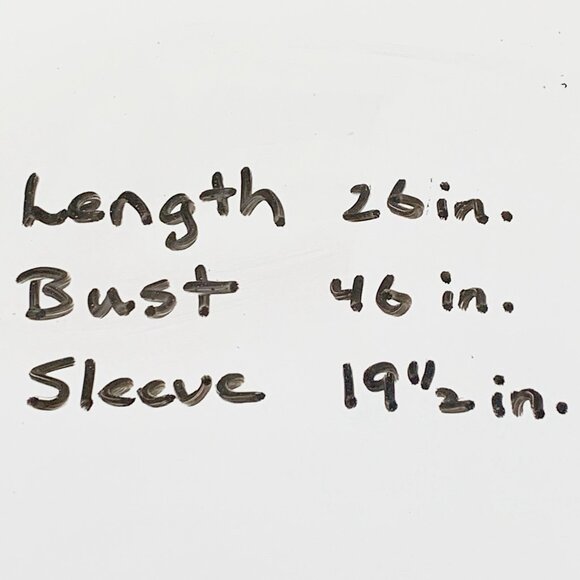 Length 26 in.
Bust 46 in.
Sleeve 19 1/2 in.